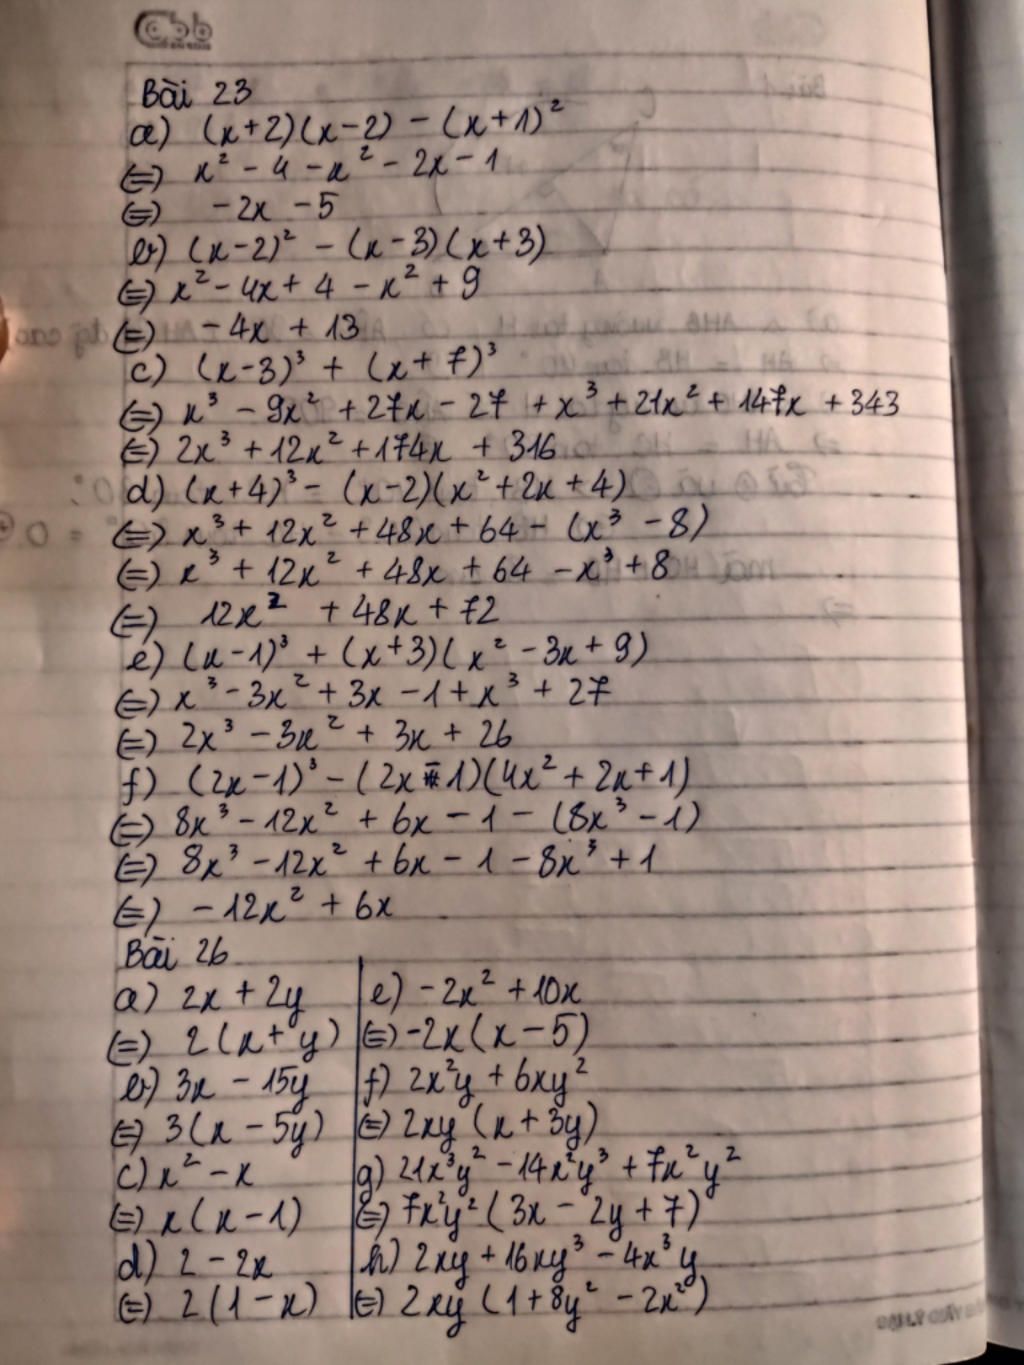 Bài 23
a) (x+2)(x-2) - (x+1)²
(=) x² - 4 - x² - 2x - 1
(=) -2x - 5
b) (x-2)² - (x-3)(x+3)
(=) x² - 4x + 4 - x² + 9
(=) -4x + 13
c) (x-3)³ + (x+7)³
(=) x³ - 9x² + 27x - 27 + x³ + 21x² + 147x + 343
(=) 2x³ + 12x² + 174x + 316
d) (x+4)³ - (x-2)(x² + 2x + 4)
(=) x³ + 12x² + 48x + 64 - (x³ - 8)
(=) x³ + 12x² + 48x + 64 - x³ + 8
(=) 12x² + 48x + 72
e) (x-1)³ + (x+3)(x² - 3x + 9)
(=) x³ - 3x² + 3x - 1 + x³ + 27
(=) 2x³ - 3x² + 3x + 26
f) (2x-1)³ - (2x-1)(4x² + 2x + 1)
(=) 8x³ - 12x² + 6x - 1 - (8x³ - 1)
(=) 8x³ - 12x² + 6x - 1 - 8x³ + 1
(=) -12x² + 6x
Bài 26
a) 2x + 2y
(=) 2(x + y)
b) 3x - 15y
(=) 3(x - 5y)
c) x² - x
(=) x(x - 1)
d) 2 - 2x
(=) 2(1 - x)
e) -2x² + 10x
(=) -2x(x - 5)
f) 2x²y + 6xy²
(=) 2xy(x + 3y)
g) 21x³y² - 14x²y³ + 7x²y²
(=) 7x²y²(3x - 2y + 7)
h) 2xy + 16xy³ - 4x³y
(=) 2xy(1 + 8y² - 2x²)